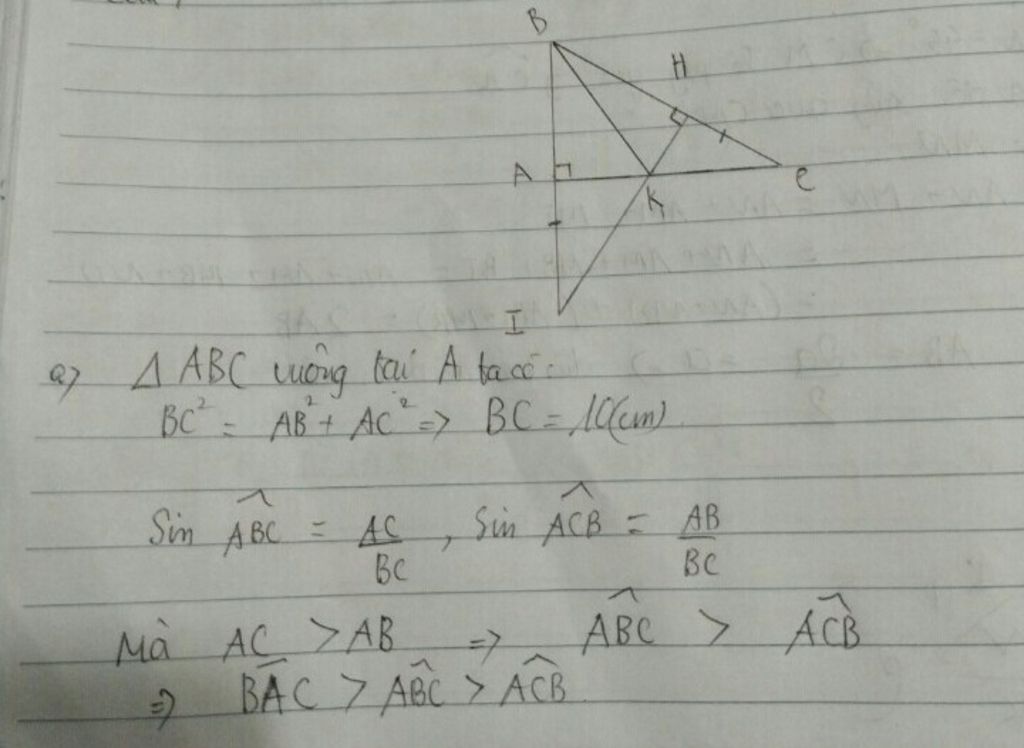 B
H
A
K
C
I
a) Δ ABC vuông tại A ta có:
BC² = AB² + AC² => BC = 10(cm)
Sin \widehat{ABC} = \frac{AC}{BC} , Sin \widehat{ACB} = \frac{AB}{BC}
Mà AC > AB => \widehat{ABC} > \widehat{ACB}
=> \widehat{BAC} > \widehat{ABC} > \widehat{ACB}